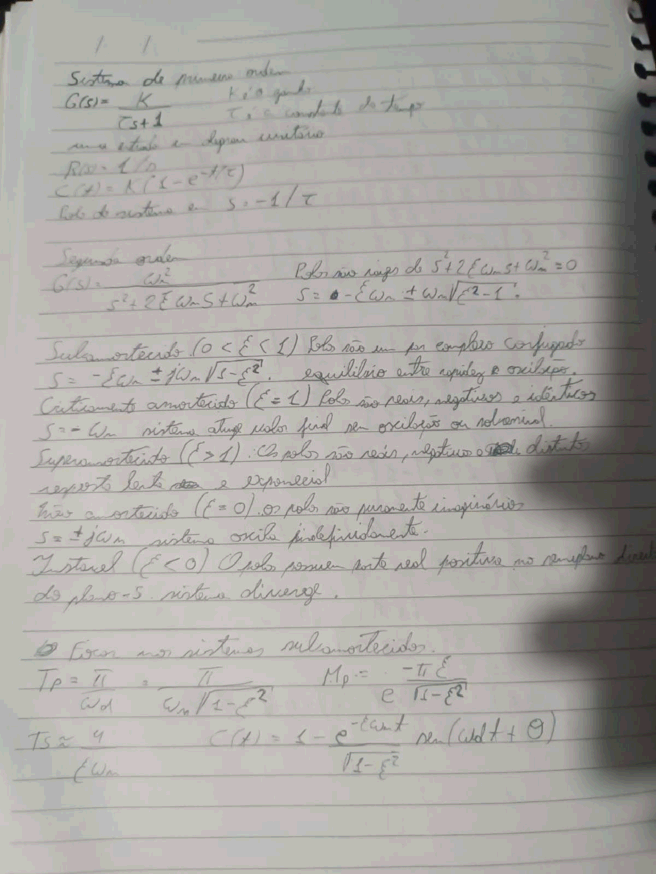 / /
Sistema de primeira ordem
G(s) = K / (τs+1) K, é o ganho
τ, é a constante de tempo
entrada em degrau unitário
R(s) = 1/s
C(t) = K(1 - e^-t/τ)
Polo do sistema em s = -1/τ
Segunda ordem
G(s) = ωn² / (s² + 2ξωns + ωn²) Polos são raízes de s² + 2ξωns + ωn² = 0
s = -ξωn ± ωn√(ξ² - 1).
Subamortecido (0 < ξ < 1) Polos são um par complexo conjugado
s = -ξωn ± jωn√(1-ξ²). equilíbrio entre rapidez e oscilação.
Criticamente amortecido (ξ = 1) Polos são reais, negativos e idênticos
s = -ωn sistema atinge valor final sem oscilação ou
Superamortecido (ξ > 1). Os polos são reais, negativos e distintos
resposta lenta e exponecial
Não amortecido (ξ = 0). os polos são puramente imaginários
s = ±jωn sistema oscila indefinidamente.
Instavel (ξ < 0) O polo possuem parte real positiva no semiplano
do plano-s sistema diverge.
Focar nos sistemas subamortecidos.
Tp = π/ωd = π / (ωn√(1-ξ²)) Mp = e^(-πξ/√(1-ξ²))
Ts ≈ 4/(ξωn) C(t) = 1 - e^(-ξωnt)/√(1-ξ²) sen(ωdt + θ)